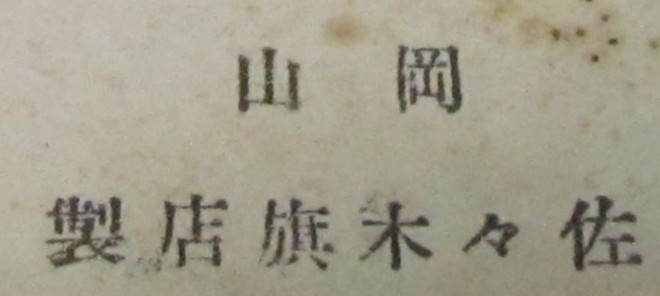 岡山
佐々木旗店製